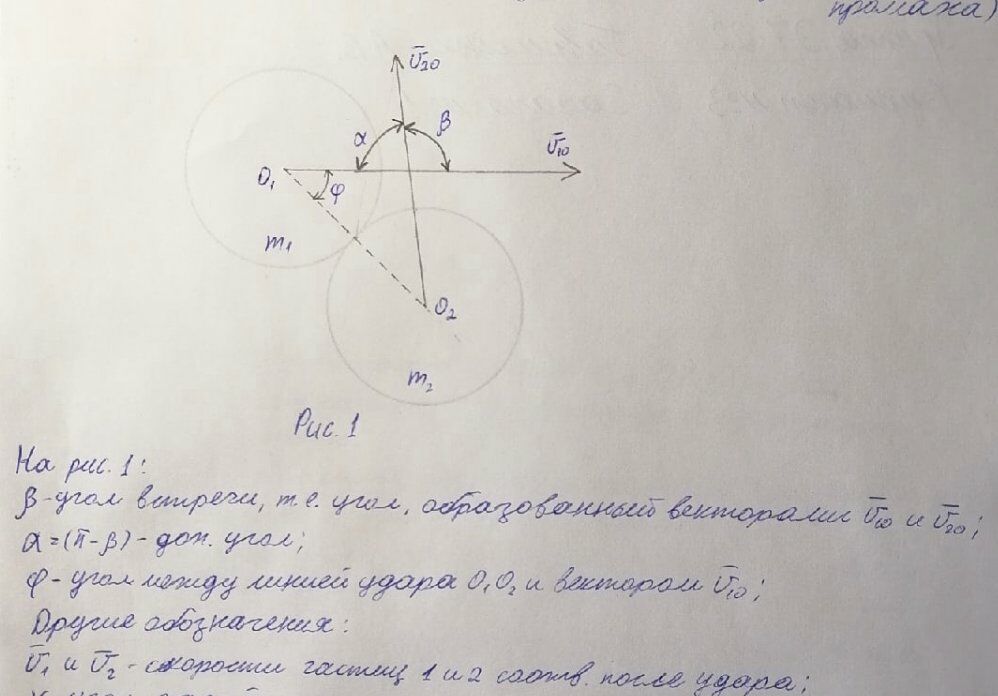 промаха)
Ū₂₀
α
β
Ū₁₀
O₁
φ
m₁
O₂
m₂
Рис. 1
На рис. 1:
β-угол встречи, т.е. угол, образованный векторами Ū₁₀ и Ū₂₀;
α=(π-β)- доп. угол;
φ- угол между линией удара O₁O₂ и вектором Ū₁₀;
Другие обозначения:
Ū₁ и Ū₂ - скорости частиц 1 и 2 соотв. после удара;